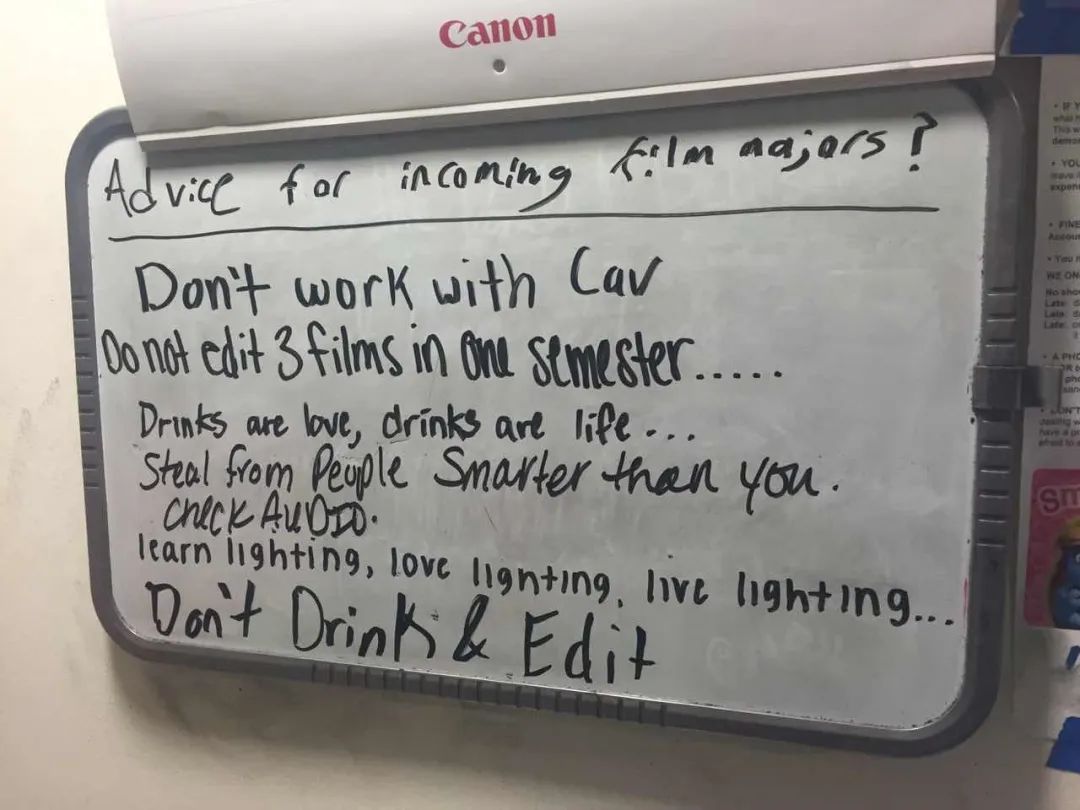 Canon
Advice for incoming film majors?
Don't work with Cav
Do not edit 3 films in one semester.....
Drinks are love, drinks are life...
Steal from People Smarter than you.
Check AUDIO.
learn lighting, love lighting, live lighting...
Don't Drink & Edit
• IF Y
• YOU
• FINE
Accou
• You
WE ON
No sho
Late:
Late:
Late:
• A PHO
Sm